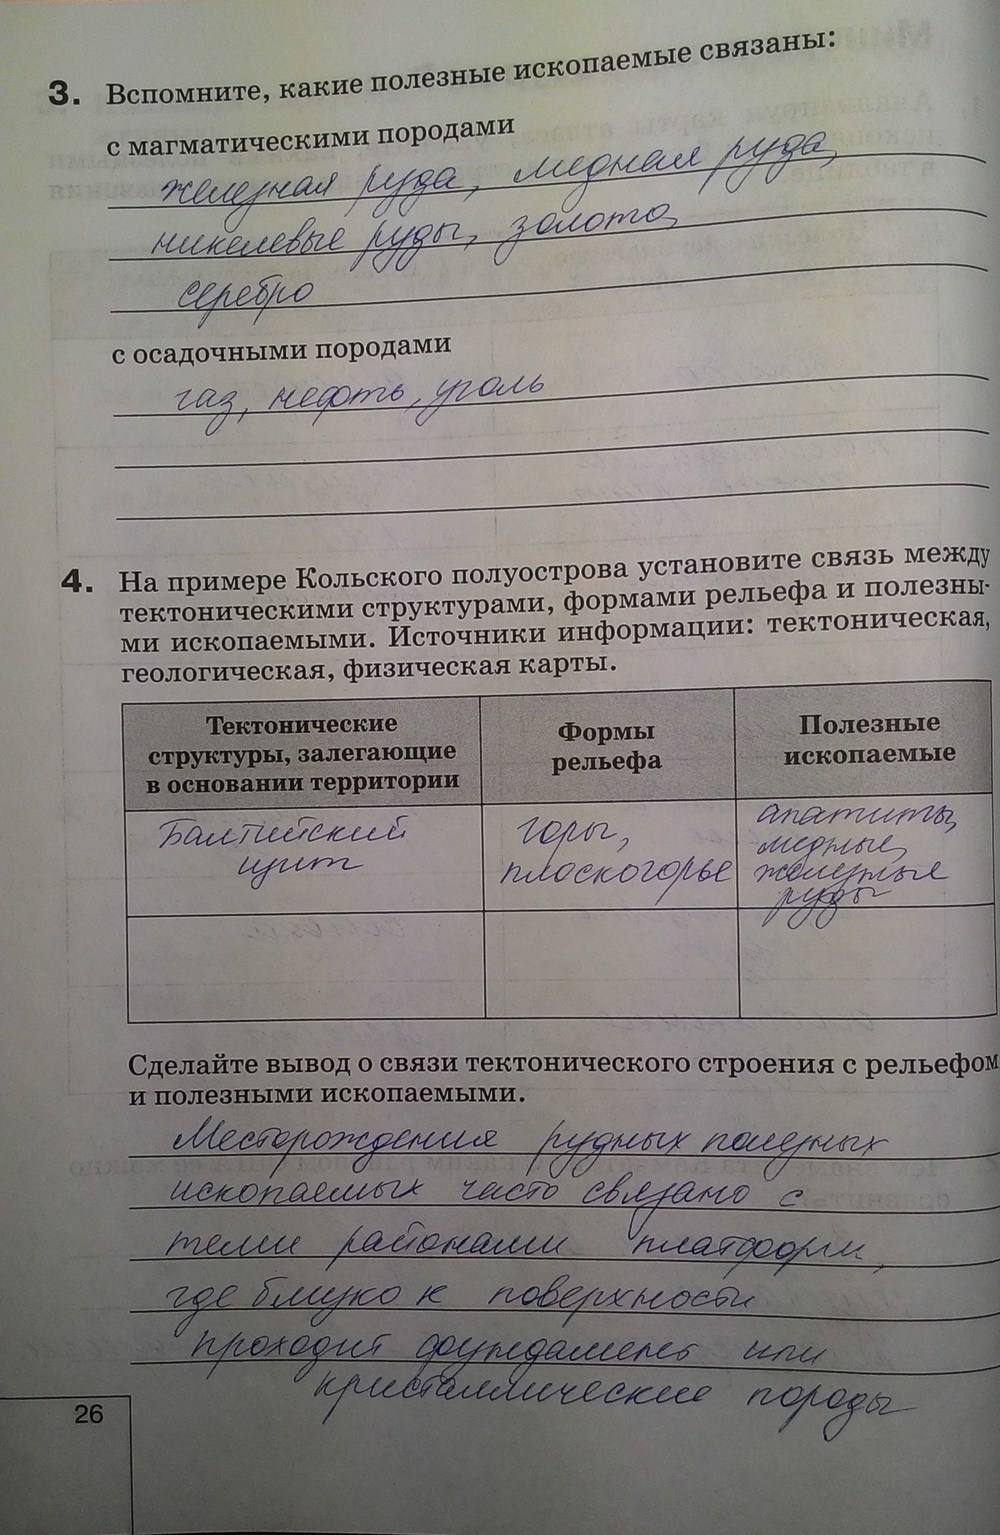 3. Вспомните, какие полезные ископаемые связаны:
с магматическими породами
железная руда, медная руда,
никелевые руды, золото,
серебро
с осадочными породами
газ, нефть, уголь
4. На примере Кольского полуострова установите связь между
тектоническими структурами, формами рельефа и полезны-
ми ископаемыми. Источники информации: тектоническая,
геологическая, физическая карты.
Тектонические
структуры, залегающие
в основании территории
Формы
рельефа
Полезные
ископаемые
Балтийский
щит
горы,
плоскогорье
апатиты,
медные,
железные
руды
Сделайте вывод о связи тектонического строения с рельефом
и полезными ископаемыми.
Месторождения рудных полезных
ископаемых часто связано с
теми районами платформ,
где близко к поверхности
проходит фундамент или
кристаллические породы
26